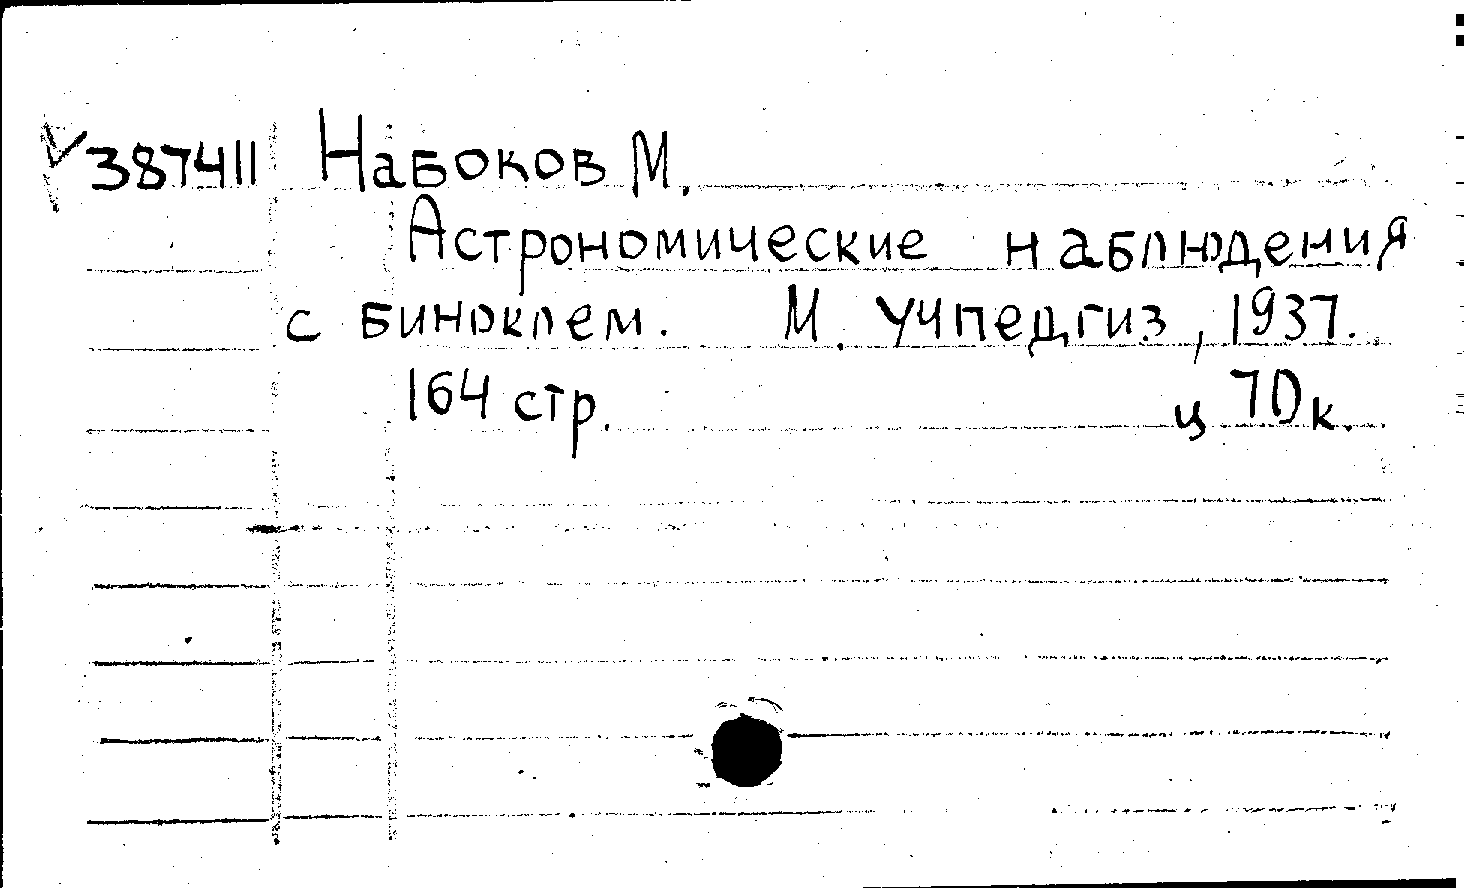 387411 Набоков М.
Астрономические наблюдения
с биноклем. М. Учпедгиз, 1937.
164 стр. ц 70 к.